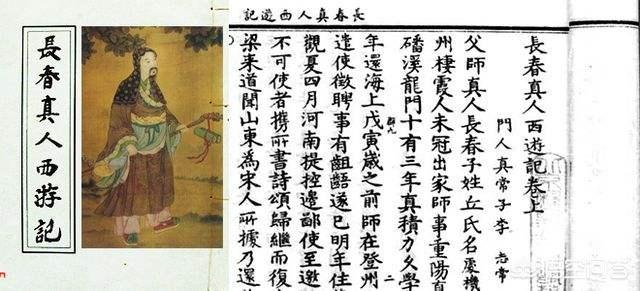 長春真人西游記
長春真人西遊記
長春真人西遊記卷上
門人真常子李志常
父師真人長春子姓丘氏名處機
州棲霞人未冠出家師事重陽真
磻溪龍門十有三年真積力久學
二
年還海上戊寅歲之前師在登州
遣使徵聘事有齟齬遂已明年住
觀夏四月河南提控邊鄙使至邀
不可使者攜所書詩頌歸繼而復
梁来道聞山東為宋人所據乃還